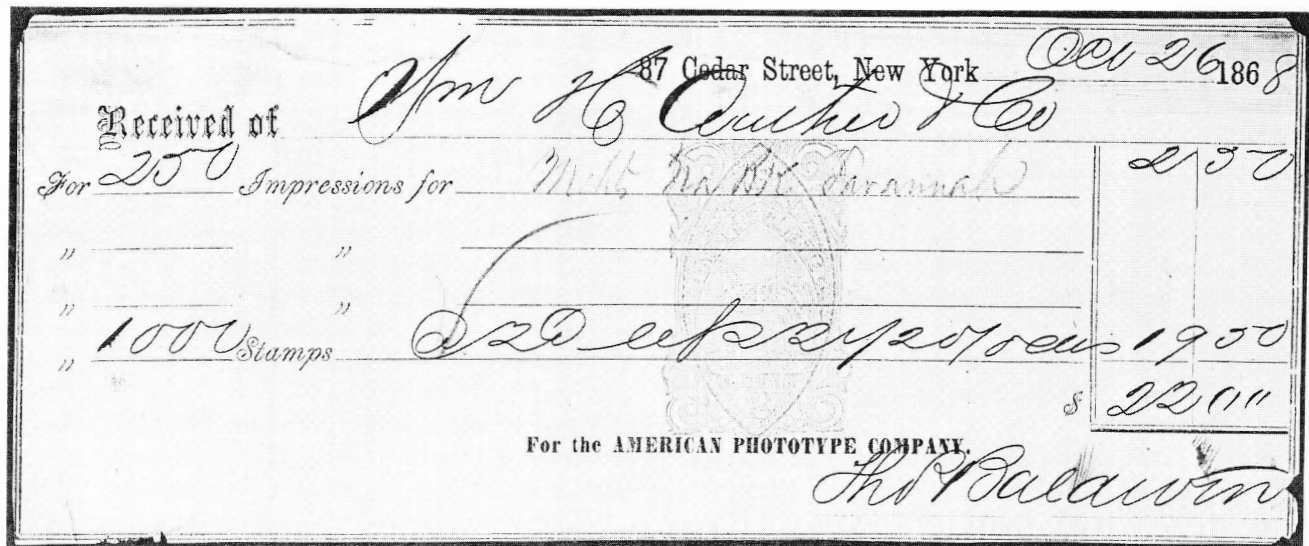 87 Cedar Street, New York Oct 26 1868
Received of Wm H & Co
For 250 Impressions for Savannah 2 50
„ „
„ „
„ 1000 Stamps 19 50
$ 22 00
For the AMERICAN PHOTOTYPE COMPANY.
Thos Baldwin